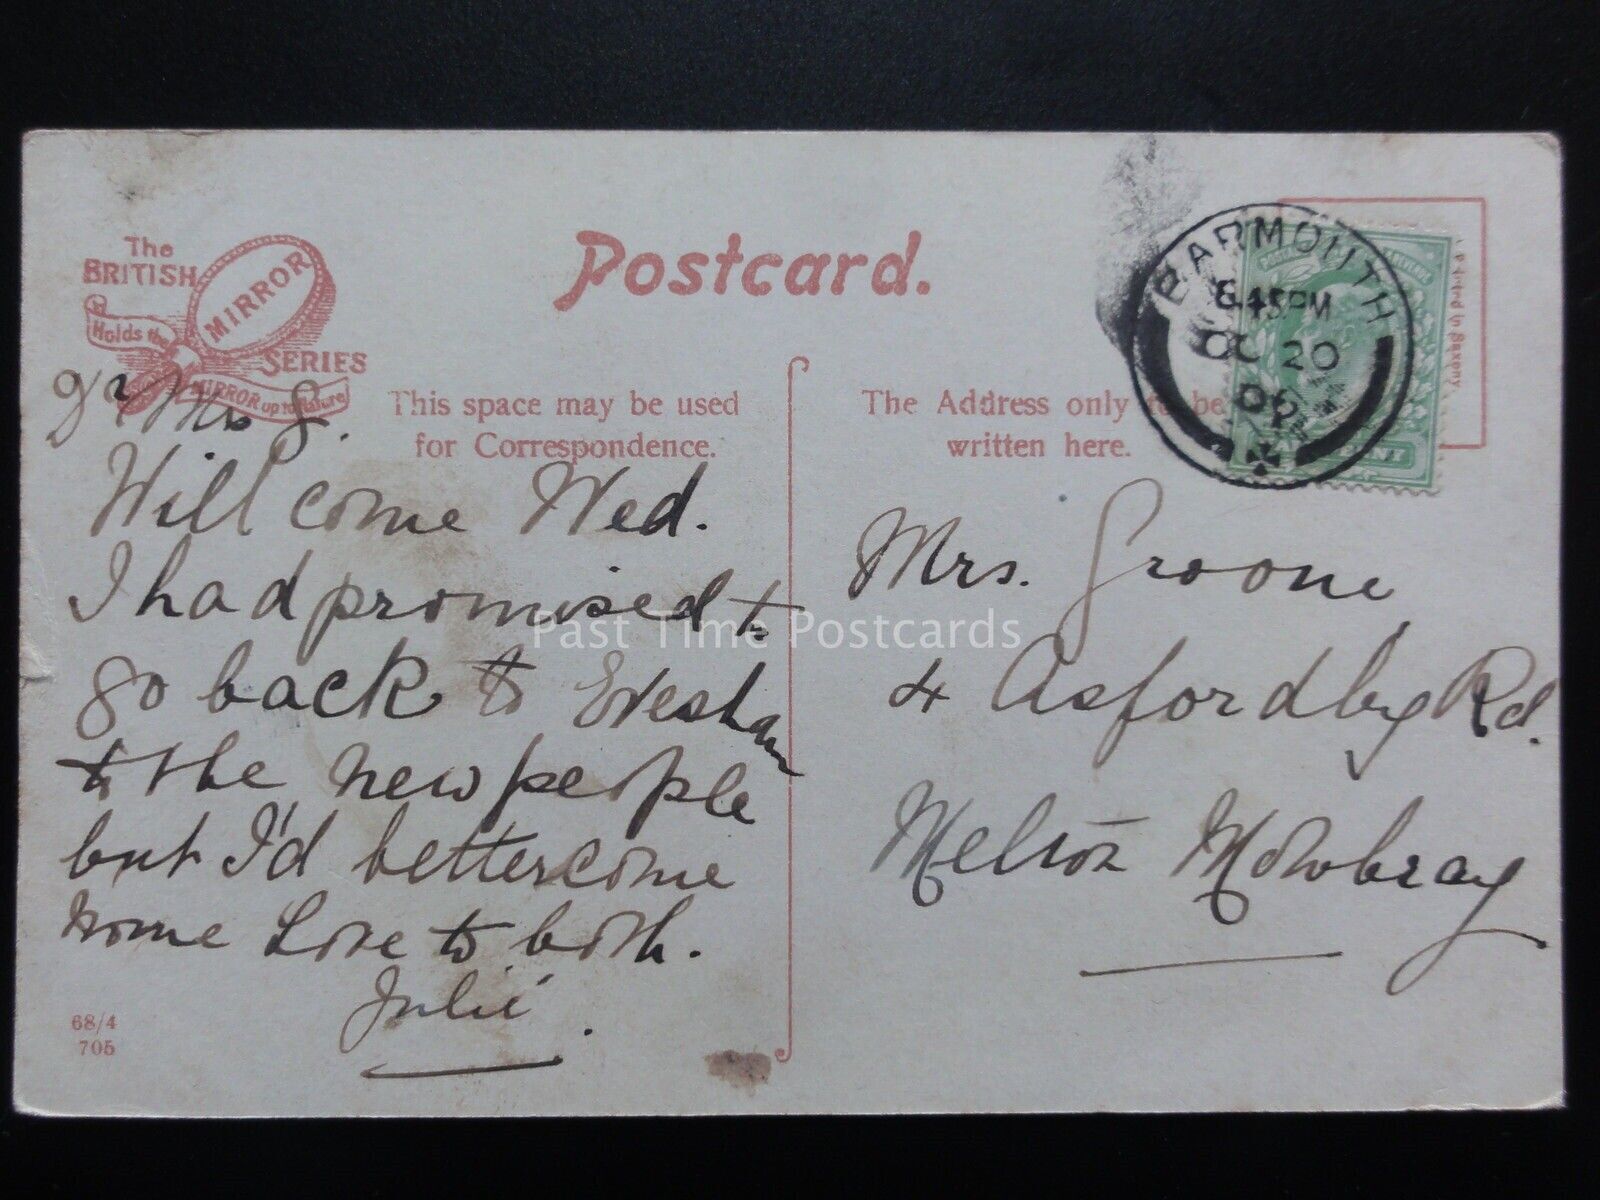 The
BRITISH
MIRROR
SERIES
Holds the
MIRROR up to Nature
Postcard.
This space may be used
for Correspondence.
The Address only to be
written here.
Printed in Saxony
BARMOUTH
8.45PM
OC 20
Dr Mrs G.
Will come Wed.
I had promised to
go back to Evesham
to the new people
but I'd better come
home Love to both.
Julie.
Mrs. Groone
4 Asfordby Rd.
Melton Mowbray
68/4
705
Past Time Postcards